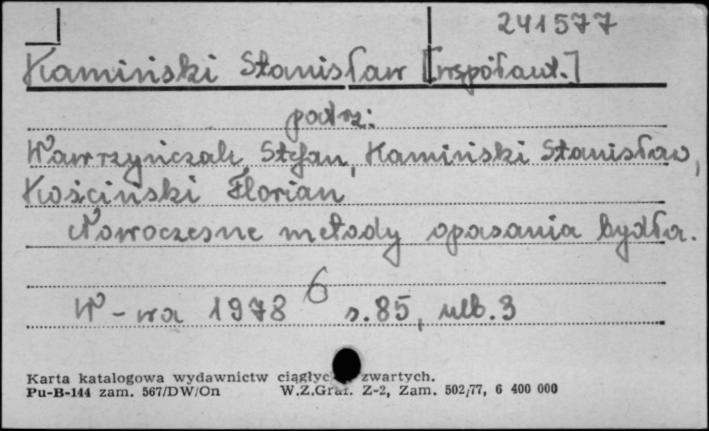 241577
Kamiński Stanisław [współaut.]
patrz:
Wawrzyńczak Stefan, Kamiński Stanisław,
Kościński Florian
Nowoczesne metody opasania bydła.
6
W-wa 1978 s. 85, nlb. 3
Karta katalogowa wydawnictw ciągłyc zwartych.
Pu-B-144 zam. 567/DW/On W.Z.Graf. Z-2, Zam. 502/77, 6 400 000